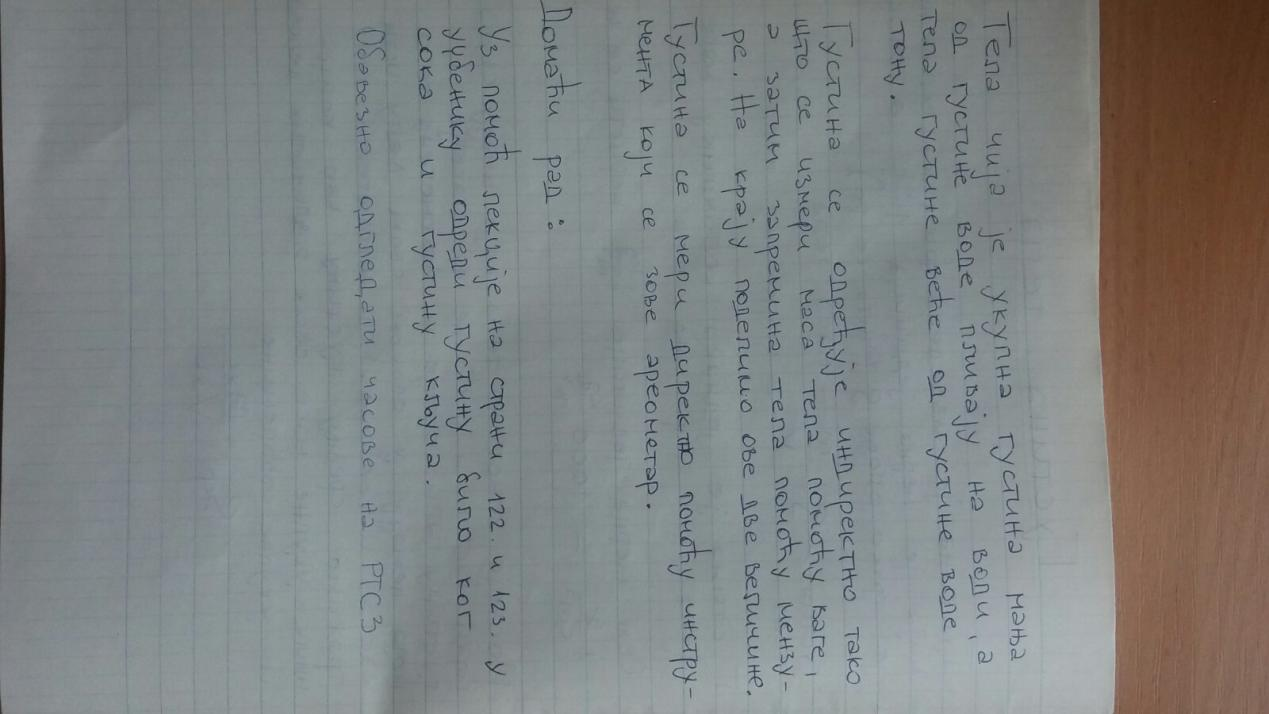 Тела чија је укупна густина мања
од густине воде пливају на води, а
тела густине веће од густине воде
тону.
Густина се одређује индиректно тако
што се измери маса тела помоћу ваге,
а затим запремина тела помоћу мензу-
ре. На крају поделимо ове две величине.
Густина се мери директно помоћу инстру-
мента који се зове ареометар.
Домаћи рад:
Уз помоћ лекције на страни 122. и 123. у
уџбенику одреди густину било ког
сока и густину кључа.
Обавезно одгледати часове на РТС3